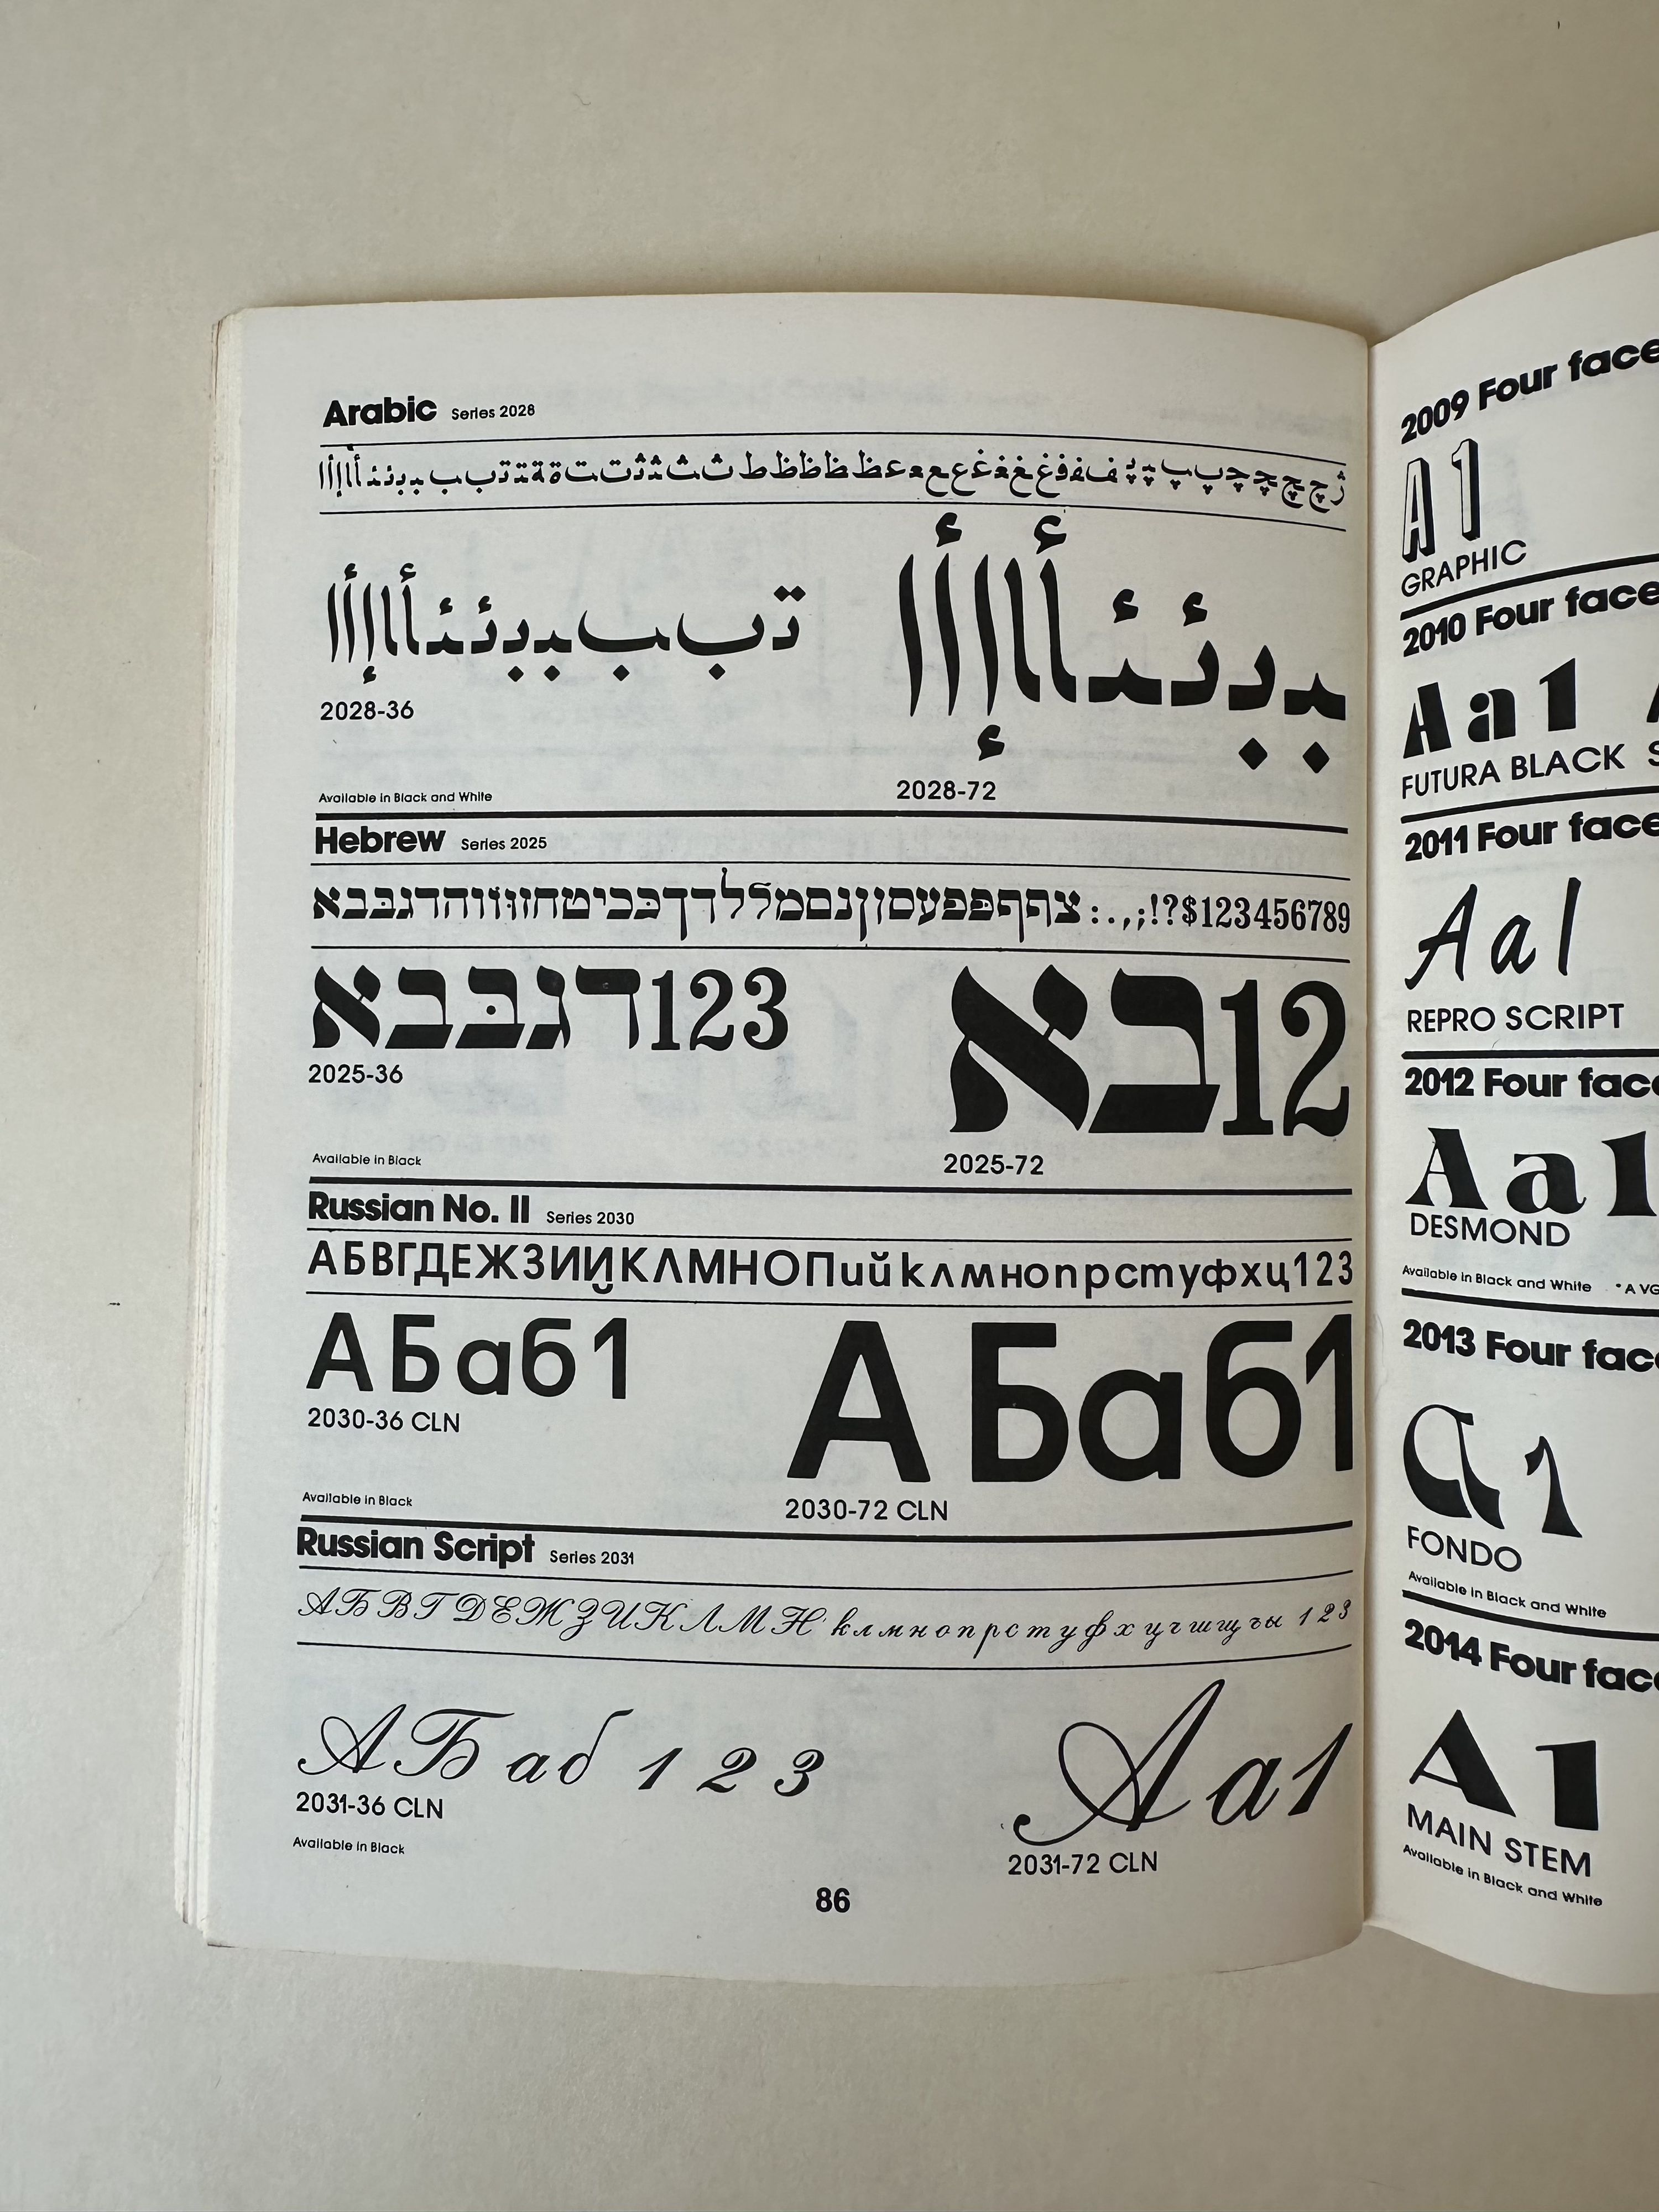 Arabic Series 2028
2028-36
2028-72
Available in Black and White
Hebrew Series 2025
אבבּגדהוווּזחטיכּכךדלמםנןסעפפּףץצ : . , ; ! ? $ 1 2 3 4 5 6 7 8 9
אבבּגד123
2025-36
אב12
2025-72
Available in Black
Russian No. II Series 2030
АБВГДЕЖЗИЙКЛМНОПийклмнопрстуфхц123
АБаб1
АБаб1
2030-36 CLN
2030-72 CLN
Available in Black
Russian Script Series 2031
АБВГДЕЖЗИКЛМН клмнопрстуфхцчшщъы 123
АБ аб 1 2 3
Аа1
2031-36 CLN
2031-72 CLN
Available in Black
86
2009 Four face
A1
GRAPHIC
2010 Four face
Aa1
FUTURA BLACK
2011 Four face
Aa1
REPRO SCRIPT
2012 Four
Aa1
DESMOND
Available in Black and White
2013 Four
a1
FONDO
Available in Black and White
2014 Four
A1
MAIN STEM
Available in Black and White